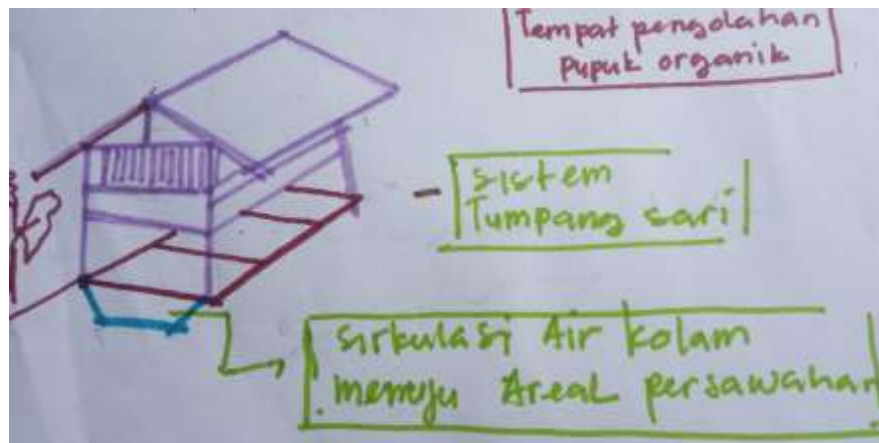 Tempat pengolahan
pupuk organik
sistem
Tumpang sari
sirkulasi Air kolam
menuju Areal persawahan